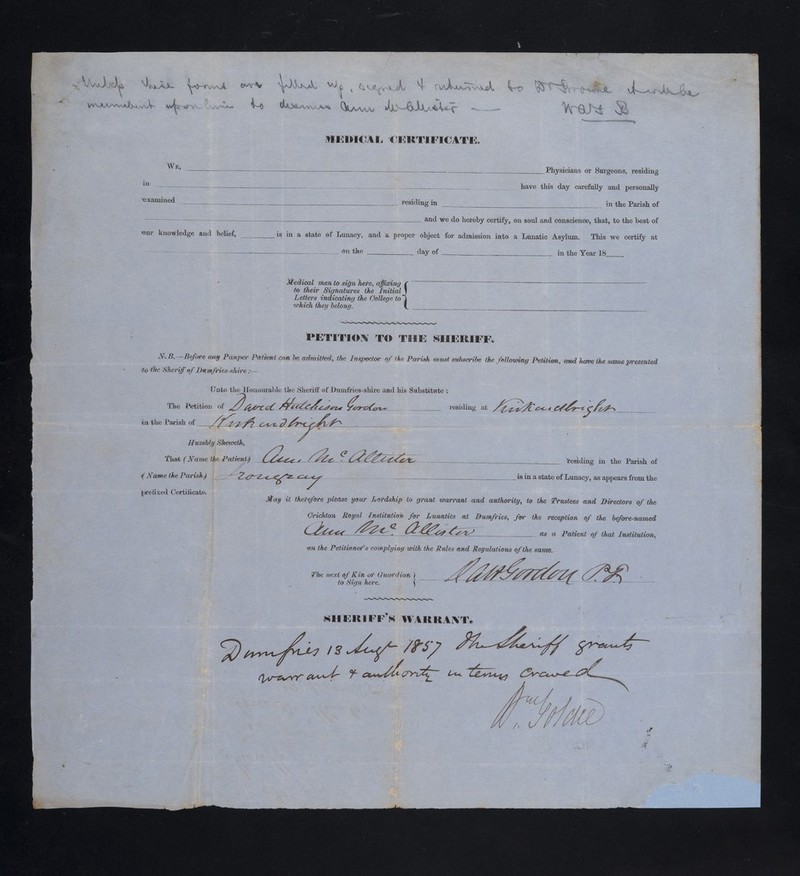 Unless these forms are filled up, signed & returned to Dr Browne it will be
incumbent upon him to dismiss Ann McAllister —
W A F B
MEDICAL CERTIFICATE.
WE, Physicians or Surgeons, residing
in have this day carefully and personally
examined residing in in the Parish of
and we do hereby certify, on soul and conscience, that, to the best of
our knowledge and belief, is in a state of Lunacy, and a proper object for admission into a Lunatic Asylum. This we certify at
on the day of in the Year 18
Medical men to sign here, affixing
to their Signatures the Initial
Letters indicating the College to
which they belong.
PETITION TO THE SHERIFF.
N.B.—Before any Pauper Patient can be admitted, the Inspector of the Parish must subscribe the following Petition, and have the same presented
to the Sheriff of Dumfries-shire:—
Unto the Honourable the Sheriff of Dumfries-shire and his Substitute;
The Petition of David Hutchison Gordon residing at Kirkcudbright
in the Parish of Kirkcudbright
Humbly Sheweth,
That (Name the Patient) Ann McAllister residing in the Parish of
(Name the Parish) Irongray is in a state of Lunacy, as appears from the
prefixed Certificate.
May it therefore please your Lordship to grant warrant and authority, to the Trustees and Directors of the
Crichton Royal Institution for Lunatics at Dumfries, for the reception of the before-named
Ann Mc.Allister as a Patient of that Institution,
on the Petitioner's complying with the Rules and Regulations of the same.
The next of Kin or Guardian
to Sign here.
Gordon P.F.
SHERIFF'S WARRANT.
Dumfries 13 Augt 1857 The Sheriff grants
warrant & authority in terms craved
Wm Goldie